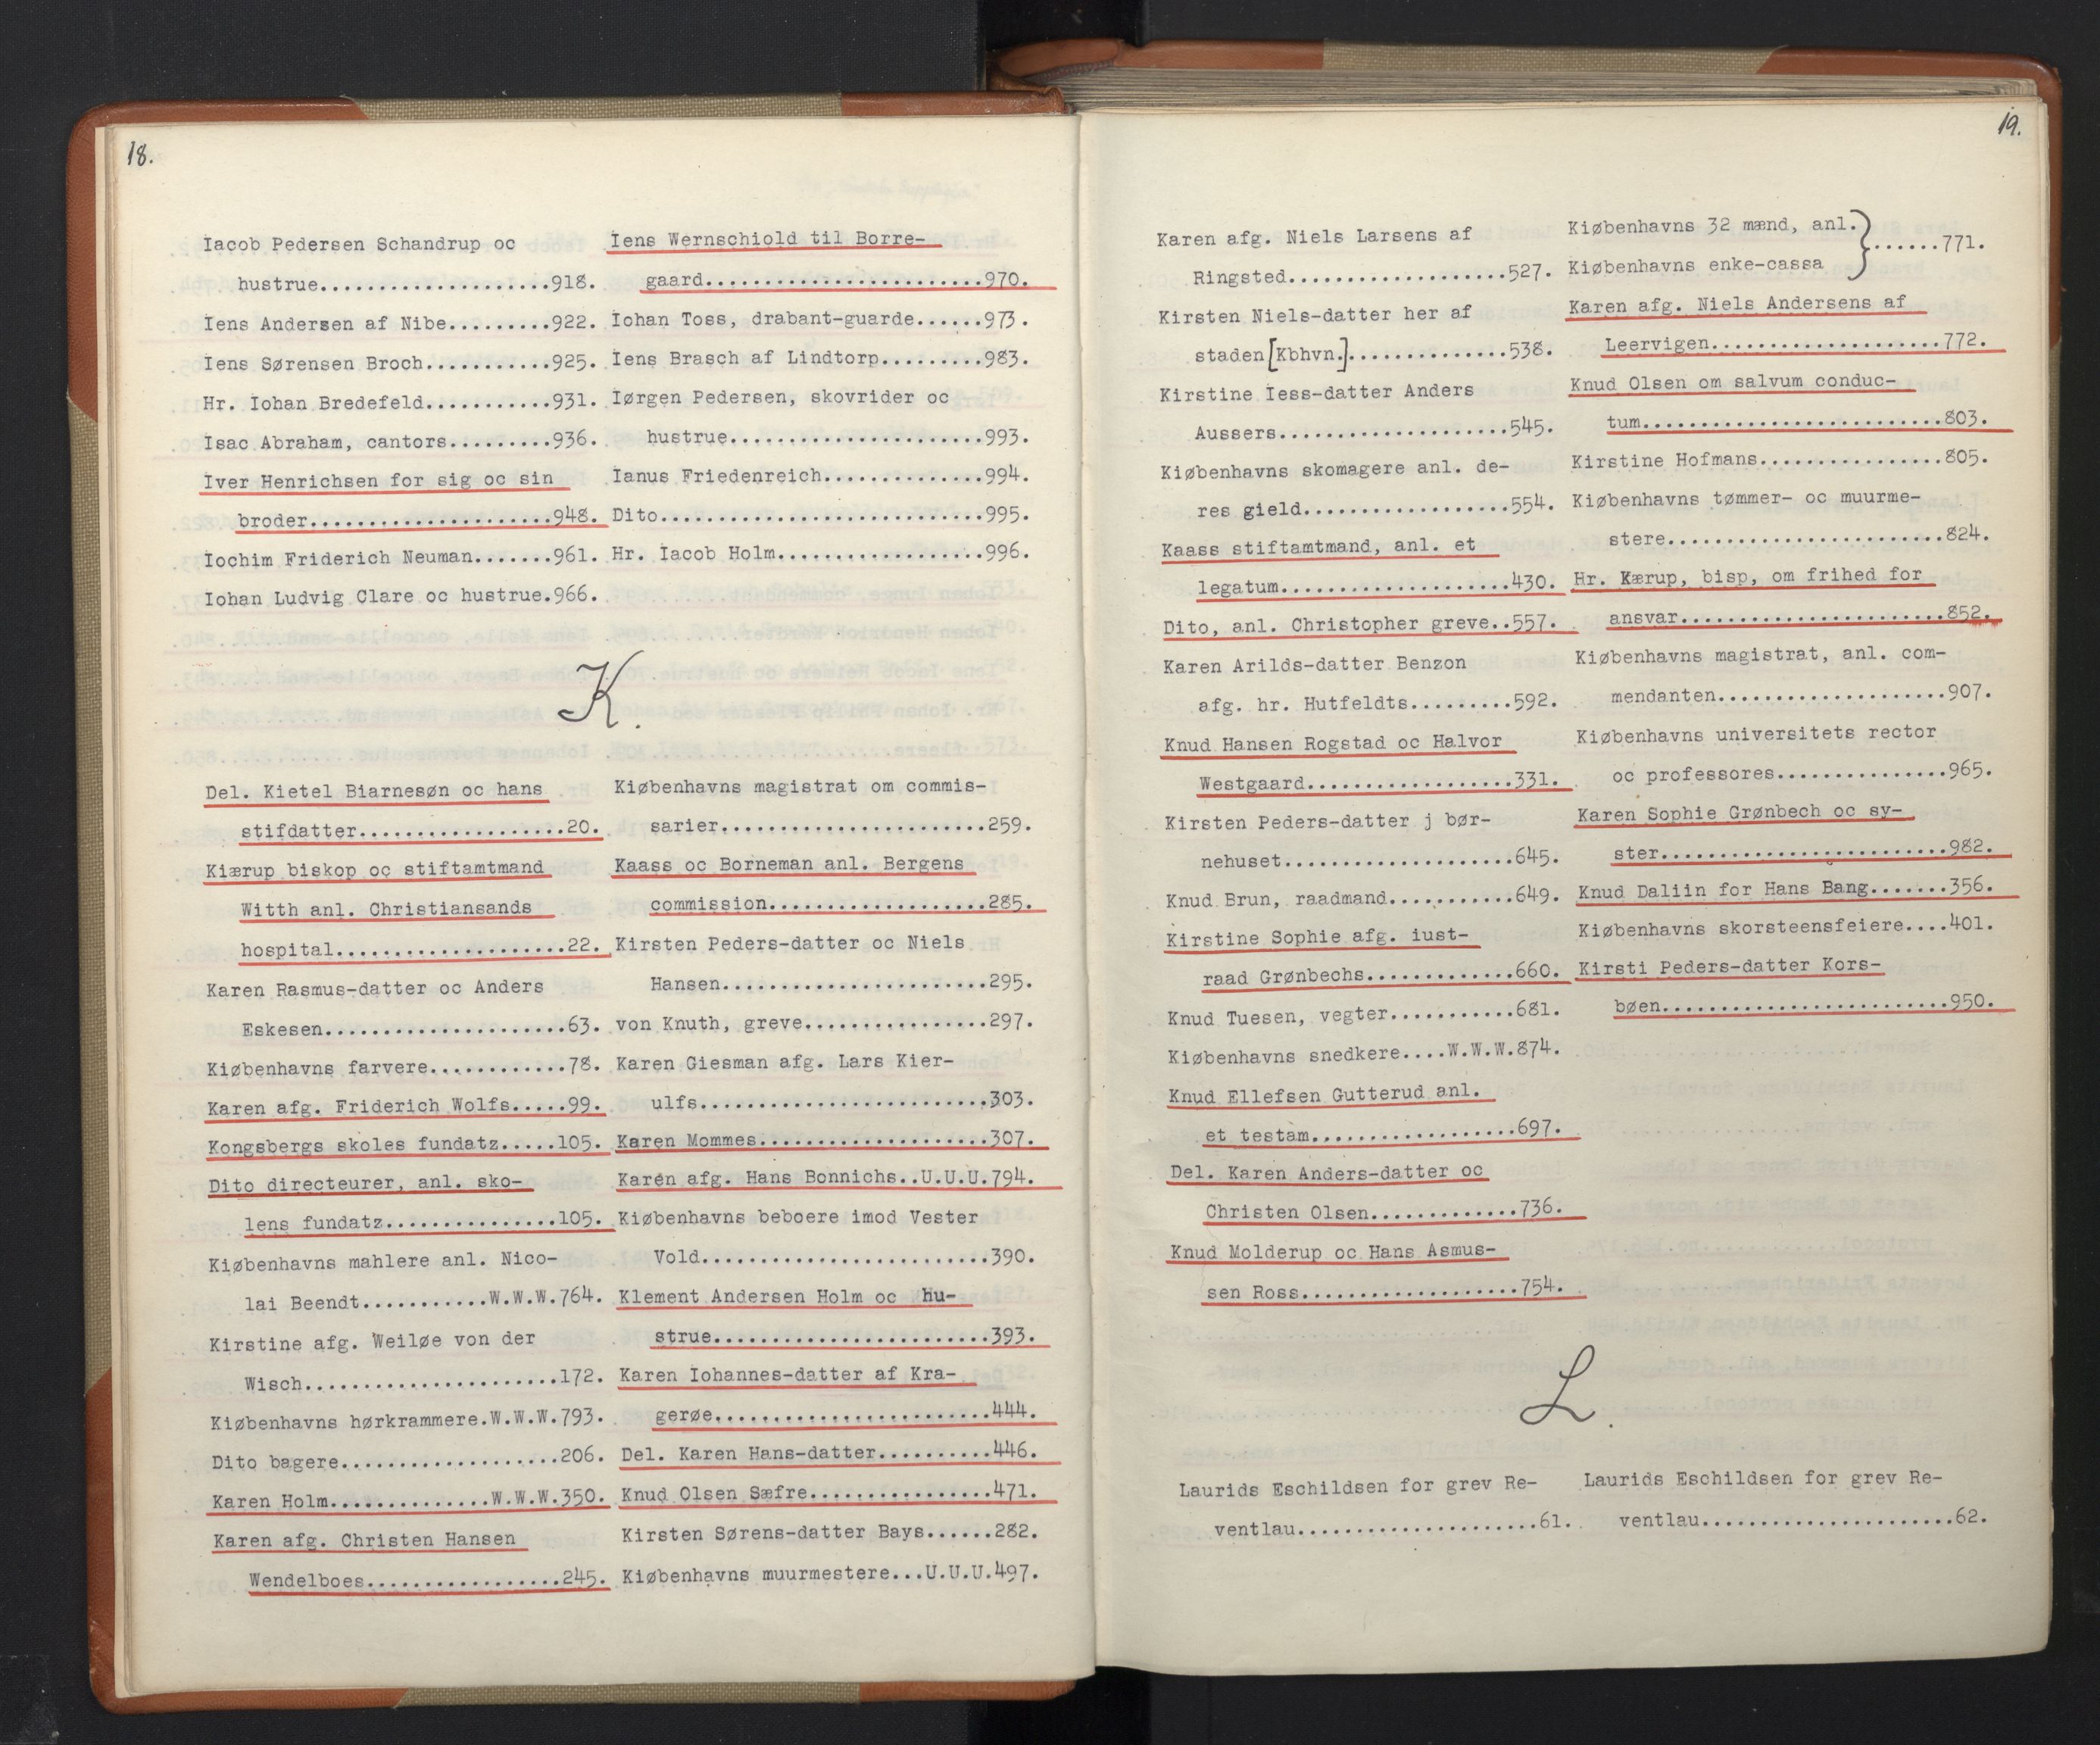 18.
Iacob Pedersen Schandrup oc
hustrue....................918.
Iens Andersen af Nibe.........922.
Iens Sørensen Broch...........925.
Hr. Iohan Bredefeld...........931.
Isac Abraham, cantors.........936.
Iver Henrichsen for sig oc sin
broder.....................948.
Iochim Friderich Neuman.......961.
Iohan Ludvig Clare oc hustrue.966.
Iens Wernschiold til Borre-
gaard........................970.
Iohan Toss, drabant-guarde......973.
Iens Brasch af Lindtorp.........983.
Iørgen Pedersen, skovrider oc
hustrue......................993.
Ianus Friedenreich..............994.
Dito............................995.
Hr. Iacob Holm..................996.
K.
Del. Kietel Biarnesøn oc hans
stifdatter..................20.
Kiærup biskop oc stiftamtmand
Witth anl. Christiansands
hospital....................22.
Karen Rasmus-datter oc Anders
Eskesen.....................63.
Kiøbenhavns farvere............78.
Karen afg. Friderich Wolfs.....99.
Kongsbergs skoles fundatz.....105.
Dito directeurer, anl. sko-
lens fundatz...............105.
Kiøbenhavns mahlere anl. Nico-
lai Beendt...........W.W.W.764.
Kirstine afg. Weiløe von der
Wisch......................172.
Kiøbenhavns hørkrammere.W.W.W.793.
Dito bagere...................206.
Karen Holm..............W.W.W.350.
Karen afg. Christen Hansen
Wendelboes.................245.
Kiøbenhavns magistrat om commis-
sarier.......................259.
Kaass oc Borneman anl. Bergens
commission...................285.
Kirsten Peders-datter oc Niels
Hansen.......................295.
von Knuth, greve................297.
Karen Giesman afg. Lars Kier-
ulfs.........................303.
Karen Mommes....................307.
Karen afg. Hans Bonnichs..U.U.U.794.
Kiøbenhavns beboere imod Vester
Vold.........................390.
Klement Andersen Holm oc hu-
strue........................393.
Karen Iohannes-datter af Kra-
gerøe........................444.
Del. Karen Hans-datter..........446.
Knud Olsen Sæfre................471.
Kirsten Sørens-datter Bays......282.
Kiøbenhavns muurmestere...U.U.U.497.
19.
Karen afg. Niels Larsens af
Ringsted...................527.
Kirsten Niels-datter her af
staden[Kbhvn.]..............538.
Kirstine Iess-datter Anders
Aussers....................545.
Kiøbenhavns skomagere anl. de-
res gield..................554.
Kaass stiftamtmand, anl. et
legatum....................430.
Dito, anl. Christopher greve..557.
Karen Arilds-datter Benzon
afg. hr. Hutfeldts.........592.
Knud Hansen Rogstad oc Halvor
Westgaard..................331.
Kirsten Peders-datter j bør-
nehuset....................645.
Knud Brun, raadmand...........649.
Kirstine Sophie afg. iust-
raad Grønbechs.............660.
Knud Tuesen, vegter...........681.
Kiøbenhavns snedkere....W.W.W.874.
Knud Ellefsen Gutterud anl.
et testam..................697.
Del. Karen Anders-datter oc
Christen Olsen.............736.
Knud Molderup oc Hans Asmus-
sen Ross...................754.
Kiøbenhavns 32 mænd, anl.
Kiøbenhavns enke-cassa } ......771.
Karen afg. Niels Andersens af
Leervigen....................772.
Knud Olsen om salvum conduc-
tum..........................803.
Kirstine Hofmans................805.
Kiøbenhavns tømmer- oc muurme-
stere........................824.
Hr. Kærup, bisp, om frihed for
ansvar.......................852.
Kiøbenhavns magistrat, anl. com-
mendanten....................907.
Kiøbenhavns universitets rector
oc professores...............965.
Karen Sophie Grønbech oc sy-
ster.........................982.
Knud Daliin for Hans Bang.......356.
Kiøbenhavns skorsteensfeiere....401.
Kirsti Peders-datter Kors-
bøen.........................950.
L.
Laurids Eschildsen for grev Re-
ventlau.....................61.
Laurids Eschildsen for grev Re-
ventlau......................62.